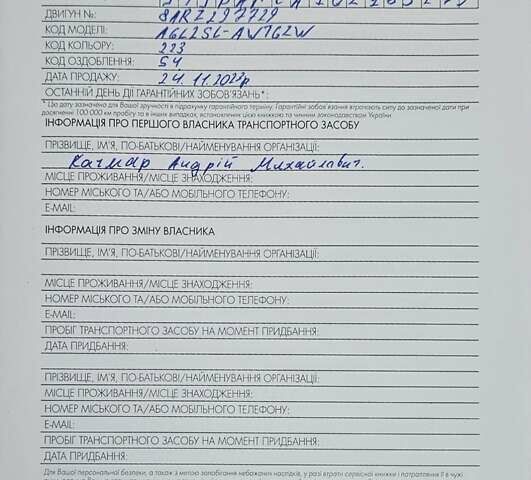 ДВИГУН №: 8ARZ297729
КОД МОДЕЛІ: AGL25L-AWTGZW
КОД КОЛЬОРУ: 223
КОД ОЗДОБЛЕННЯ: 54
ДАТА ПРОДАЖУ: 24.11.2022р
ОСТАННІЙ ДЕНЬ ДІЇ ГАРАНТІЙНИХ ЗОБОВ'ЯЗАНЬ*:
* Цю дату зазначено для Вашої зручності в підрахунку гарантійного терміну. Гарантійні зобов'язання втрачають силу до зазначеної дати при
досягненні 100 000 км пробігу та в інших випадках, встановлених цією книжкою та чинним законодавством України.
ІНФОРМАЦІЯ ПРО ПЕРШОГО ВЛАСНИКА ТРАНСПОРТНОГО ЗАСОБУ
ПРІЗВИЩЕ, ІМ'Я, ПО-БАТЬКОВІ/НАЙМЕНУВАННЯ ОРГАНІЗАЦІЇ:
Качмар Андрій Михайлович.
МІСЦЕ ПРОЖИВАННЯ/МІСЦЕ ЗНАХОДЖЕННЯ:
НОМЕР МІСЬКОГО ТА/АБО МОБІЛЬНОГО ТЕЛЕФОНУ:
E-MAIL:
ІНФОРМАЦІЯ ПРО ЗМІНУ ВЛАСНИКА
ПРІЗВИЩЕ, ІМ'Я, ПО-БАТЬКОВІ/НАЙМЕНУВАННЯ ОРГАНІЗАЦІЇ:
МІСЦЕ ПРОЖИВАННЯ/МІСЦЕ ЗНАХОДЖЕННЯ:
НОМЕР МІСЬКОГО ТА/АБО МОБІЛЬНОГО ТЕЛЕФОНУ:
E-MAIL:
ПРОБІГ ТРАНСПОРТНОГО ЗАСОБУ НА МОМЕНТ ПРИДБАННЯ:
ДАТА ПРИДБАННЯ:
ПРІЗВИЩЕ, ІМ'Я, ПО-БАТЬКОВІ/НАЙМЕНУВАННЯ ОРГАНІЗАЦІЇ:
МІСЦЕ ПРОЖИВАННЯ/МІСЦЕ ЗНАХОДЖЕННЯ:
НОМЕР МІСЬКОГО ТА/АБО МОБІЛЬНОГО ТЕЛЕФОНУ:
E-MAIL:
ПРОБІГ ТРАНСПОРТНОГО ЗАСОБУ НА МОМЕНТ ПРИДБАННЯ:
ДАТА ПРИДБАННЯ:
Для Вашої персональної безпеки, а також з метою запобігання небажаних наслідків, у разі втрати сервісної книжки і потрапляння її в чужі